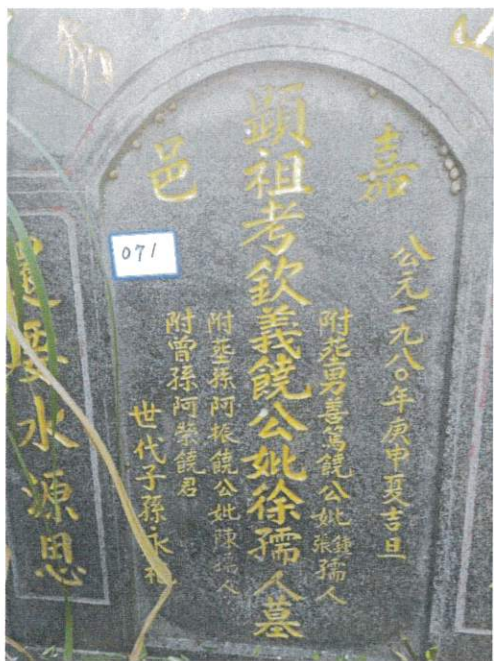 嘉邑
公元一九八〇年庚申夏吉旦
附塟男善篤饒公妣鍾張孺人
顯祖考欽義饒公妣徐孺人墓
附塟孫阿振饒公妣陳孺人
附曾孫阿榮饒君
世代子孫永
071
要水源思